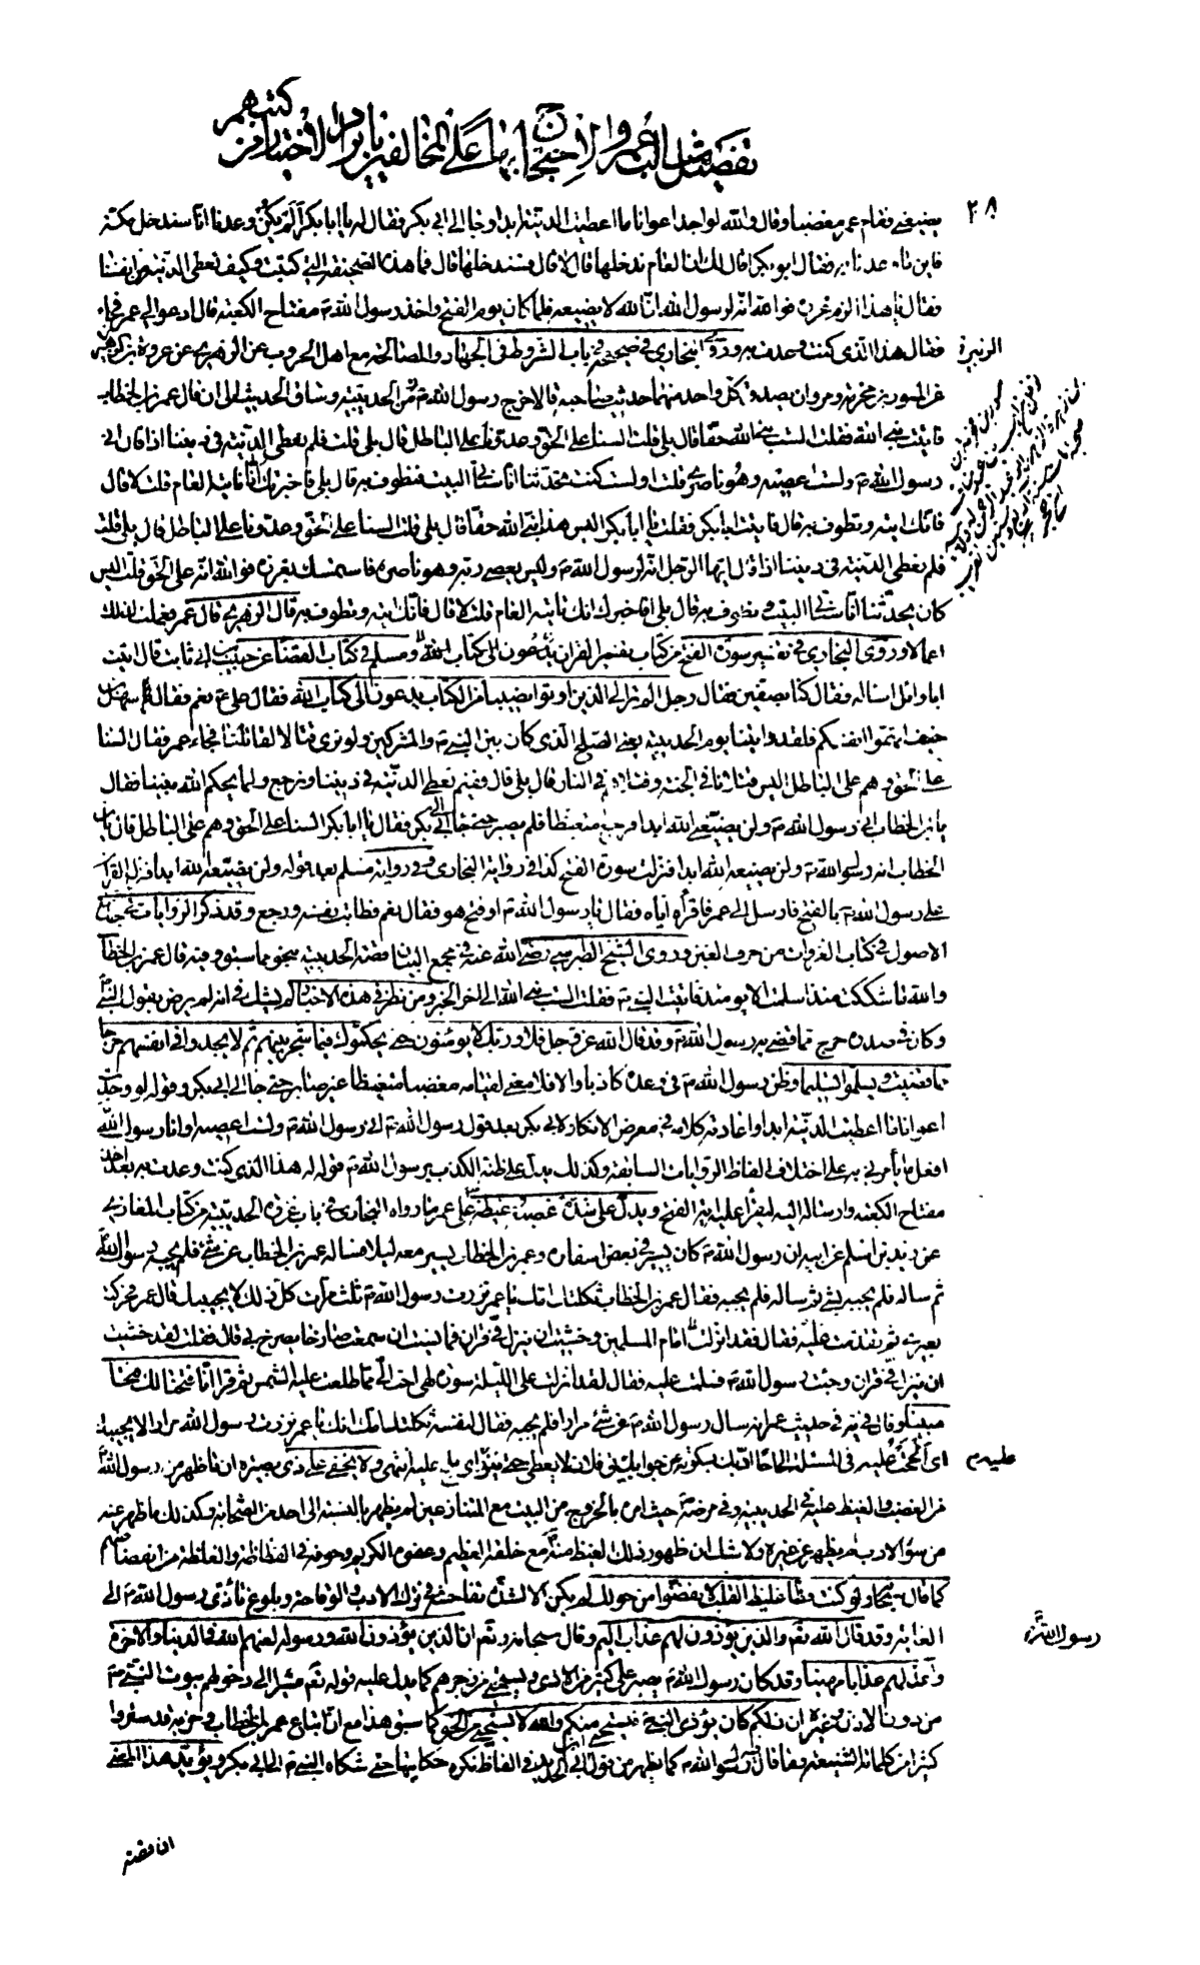 تفصيل مثالب عمر والاحتجاج بها على المخالفين بايراد الاخبار من كتبهم
٢٠٨
يضيفني فقام عمر مغضبا وقال والله لو اجد اعوانا ما اعطيت الدنية ابدا وجاء الى ابي بكر فقال له يا ابا بكر ألم يكن وعدنا انا سندخل مكة
فاين ما وعدنا به فقال ابو بكر اقال لك انه العام ندخلها قال لا قال فسندخلها قال فما هذه الصحيفة التي كتبت وكيف نعطي الدنية من انفسنا
فقال يا هذا الزم غرزه فو الله انه لرسول الله وان الله لا يضيعه فلما كان يوم الفتح واخذ رسول الله ص مفتاح الكعبة قال ادعوا لي عمر فجاء
فقال هذا الذي كنت وعدت به وروى البخاري في صحيحه في باب الشروط في الجهاد والمصالحة مع اهل الحروب عن الزهري عن عروة بن
الزبير
عن المسور بن مخرمة ومروان يصدق كل واحد منهما حديث صاحبه قالا خرج رسول الله ص من الحديبية وساق الحديث الى ان قال قال عمر بن الخطاب
فاتيت نبي الله فقلت الست نبي الله حقا قال بلى قلت السنا على الحق وعدونا على الباطل قال بلى قلت فلم نعطي الدنية في ديننا اذا قال اني
رسول الله ص ولست اعصيه وهو ناصري قلت اولست كنت تحدثنا انا سناتي البيت فنطوف به قال بلى فاخبرتك انا ناتيه العام قلت لا قال
فانك اتيه وتطوف به قال فاتيت ابا بكر فقلت يا ابا بكر اليس هذا نبي الله حقا قال بلى قلت السنا على الحق وعدونا على الباطل قال بلى قلت
فلم نعطي الدنية في ديننا اذا قال ايها الرجل انه لرسول الله ص وليس يعصي ربه وهو ناصره فاستمسك بغرزه فو الله انه على الحق قلت اليس
كان يحدثنا انا سناتي البيت ونطوف به قال بلى افاخبرك انك تاتيه العام قلت لا قال فانك اتيه وتطوف به قال الزهري قال عمر فعملت لذلك
اعمالا وروى البخاري في تفسير سورة الفتح من كتاب تفسير القران ومسلم في كتاب القضاء عن حبيب بن ابي ثابت قال اتيت
ابا وائل اساله فقال كنا بصفين فقال رجل الم تر الى الذين اوتوا نصيبا من الكتاب يدعون الى كتاب الله فقال علي ع نعم فقال سهل بن
حنيف اتهموا انفسكم فلقد رايتنا يوم الحديبية يعني الصلح الذي كان بين النبي ص والمشركين ولو نرى قتالا لقاتلنا فجاء عمر فقال السنا
على الحق وهم على الباطل اليس قتلانا في الجنة وقتلاهم في النار قال بلى قال ففيم نعطي الدنية في ديننا ونرجع ولما يحكم الله بيننا فقال
يا بن الخطاب اني رسول الله ص ولن يضيعني الله ابدا فرجع متغيظا فلم يصبر حتى جاء الى ابي بكر فقال يا ابا بكر السنا على الحق وهم على الباطل قال يا بن
الخطاب انه رسول الله ص ولن يضيعه الله ابدا فنزلت سورة الفتح كذا في رواية البخاري وفي رواية مسلم بعد قوله ولن يضيعه الله ابدا فنزل القران
على رسول الله ص بالفتح فارسل الى عمر فاقراه اياه فقال يا رسول الله ص اوفتح هو فقال نعم فطابت نفسه ورجع وقد ذكر الروايات في جامع
الاصول في كتاب الغزوات من حرف الغين وروى الشيخ الطبرسي رضي الله عنه في مجمع البيان قصة الحديبية بنحو مما سبق وفيه قال عمر بن الخطاب
والله ما شككت منذ اسلمت الا يومئذ فاتيت النبي ص فقلت الست نبي الله الى اخر الخبر ومن نظر في هذه الاخبار لم يشك في انه لم يرض بقول النبي ص
وكان في صدره حرج مما قضى به رسول الله ص وقد قال الله عز وجل فلا وربك لا يؤمنون حتى يحكموك فيما شجر بينهم ثم لا يجدوا في انفسهم حرجا
مما قضيت ويسلموا تسليما وظن رسول الله ص في وعده كاذبا والا فلا معنى لقيامه مغضبا متغيظا غير صابر حتى جاء الى ابي بكر وقوله لو وجدت
اعوانا ما اعطيت الدنية ابدا واعادته كلامه في معرض الانكار لابي بكر بعد قول رسول الله ص اني رسول الله ص ولست اعصيه او انا رسول الله
افعل ما يأمرني به على اختلاف الفاظ الروايات السابقة وكذلك يدل على ظنه الكذب برسول الله ص قوله له هذا الذي كنت وعدت به بعد اخذ
مفتاح الكعبة وارساله اليه ليقرأ عليه اية الفتح ويدل على شدة غضبه غيظه على عمر ما رواه البخاري في باب غزوة الحديبية من كتاب المغازي
عن زيد بن اسلم عن ابيه ان رسول الله ص كان يسير في بعض اسفاره وعمر بن الخطاب يسير معه ليلا فساله عمر بن الخطاب عن شئ فلم يجبه رسول الله ص
ثم ساله فلم يجبه بشئ ثم ساله فلم يجبه فقال عمر بن الخطاب ثكلتك امك يا عمر نزرت رسول الله ص ثلث مرات كل ذلك لا يجيبك قال عمر فحركت
بعيري ثم تقدمت امام المسلمين وخشيت ان ينزل في قران فما نسيت ان سمعت صارخا يصرخ بي قال فقلت لقد خشيت
ان ينزل في قران وجئت رسول الله ص فسلمت عليه فقال لقد انزلت على الليلة سورة لهي احب الي مما طلعت عليه الشمس ثم قرا انا فتحنا لك فتحا
مبينا وقال في يه في حديث عمر انه سال رسول الله ص عن شئ مرارا فلم يجبه فقال لنفسه ثكلتك امك انك يا عمر نزرت رسول الله مرارا لا يجيبك
اي الححت عليه في المسئلة الحاحا ادبك بسكوته عن جوابك يق فلان لا يعطي حتى ينزر اي يلح عليه انتهى ولا يخفى على ذي بصيرة ان ما ظهر من رسول الله ص
عليه م
من الغضب والغيظ عليه في الحديبية وفي مرضه ص حيث امره بالخروج من البيت مع المتنازعين لم يظهر بالنسبة الى احد من الصحابة وكذلك ما ظهر عنه
من سوء الادب لم يظهر عن غيره ولا شك ان ظهور ذلك الغيظ منه ص مع خلقه العظيم وعفوه الكريم وخوفه في الفظاظة والغلظة من انفضاضهم
كما قال سبحانه ولو كنت فظا غليظ القلب لانفضوا من حولك لم يكن الا لشدة تفاحشه في ترك الادب والوقاحة وبلوغ تأذي رسول الله ص الى
الغاية وقد قال الله تع والذين يؤذون لهم عذاب اليم وقال سبحانه وتع ان الذين يؤذون الله ورسوله لعنهم الله في الدنيا والاخرة
رسول الله
واعد لهم عذابا مهينا وقد كان رسول الله ص يصبر على كثير من الاذى ويستحيي من زجرهم كما يدل عليه قوله تع مشيرا الى دخولهم بيوت النبي ص
من دون الاذن وغيره ان ذلكم كان يؤذي النبي فيستحيي منكم والله لا يستحيي من الحق كما سبق هذا مع ان اتباع عمر بن الخطاب وحزبه قد ستروا
كثيرا من كلماته الشنيعة وما قال له رسول الله ص كما يظهر من قول ابن ابي الحديد في الفاظ نكره حكايتها حتى شكاه النبي ص الى ابي بكر ويؤيد هذا المعنى
ان قصة